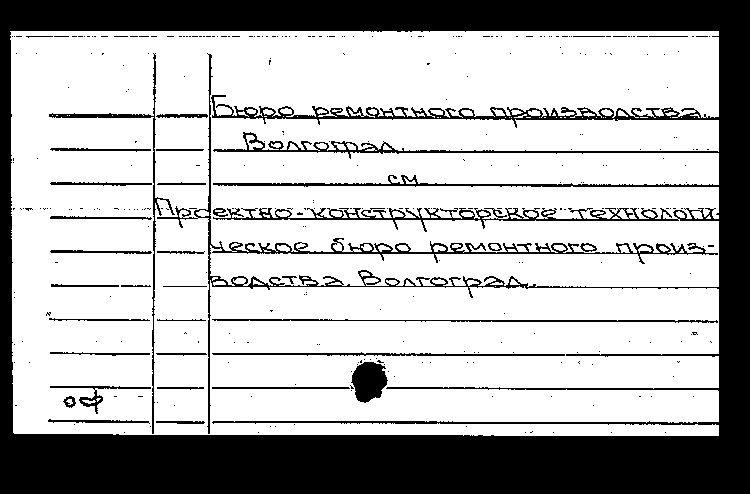 Бюро ремонтного производства.
Волгоград.
см
Проектно-конструкторское технологи-
ческое бюро ремонтного произ-
водства. Волгоград.
оф